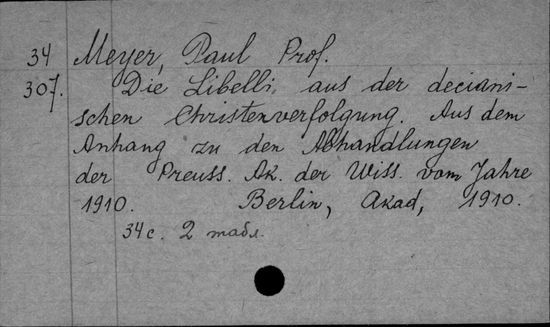 34 Meyer, Paul Prof.
307. Die Libelli, aus der deciani-
schen Christenverfolgung. Aus dem
Anhang zu den Abhandlungen
der Preuss. Ak. der Wiss. vom Jahre
1910. Berlin, Akad, 1910.
34 с. 2 табл.